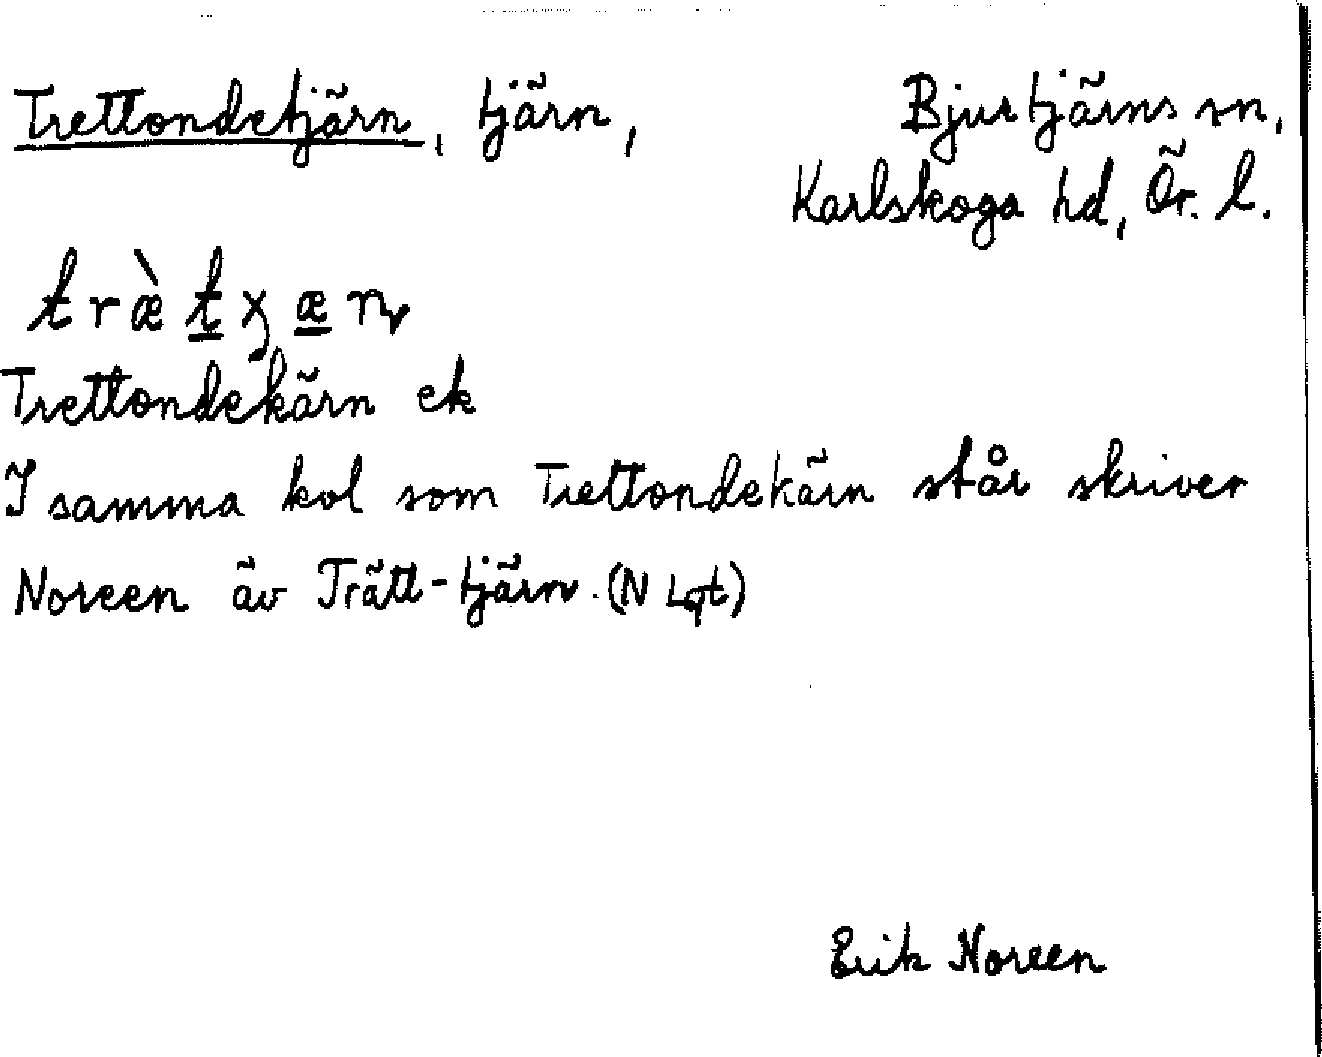 Trettondetjärn, tjärn, Bjurtjärns sn,
Karlskoga hd, Ör. l.
træ̀tχæn
Trettondekärn ek
I samma kol som Trettondekärn står skriver
Noreen äv Trätt-tjärn. (N Lgt)
Erik Noreen